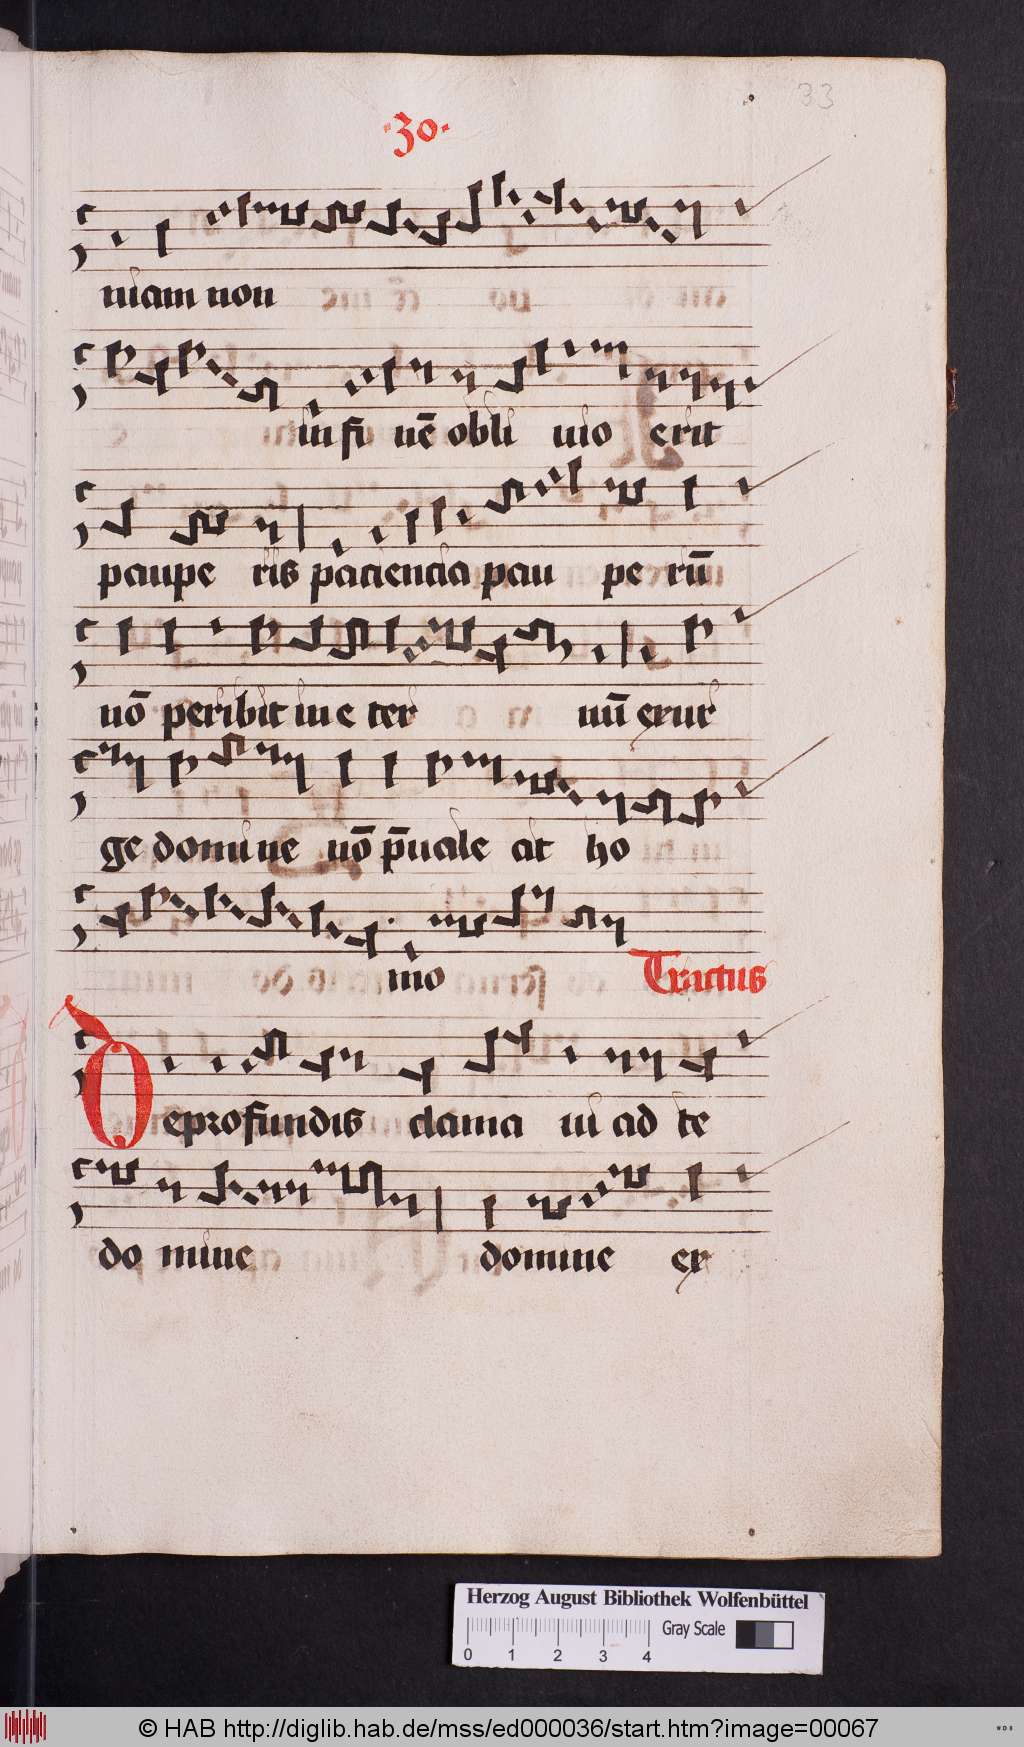 33
·30·
niam non
in fi nē obli uio erit
paupe ris paciencia pau pe rū
nō peribit in e ter nū exur
ge domi ne nō p̄uale at ho
mo Tractus
De profundis clama ui ad te
do mine domine ex
Herzog August Bibliothek Wolfenbüttel
0 1 2 3 4 Gray Scale
© HAB http://diglib.hab.de/mss/ed000036/start.htm?image=00067